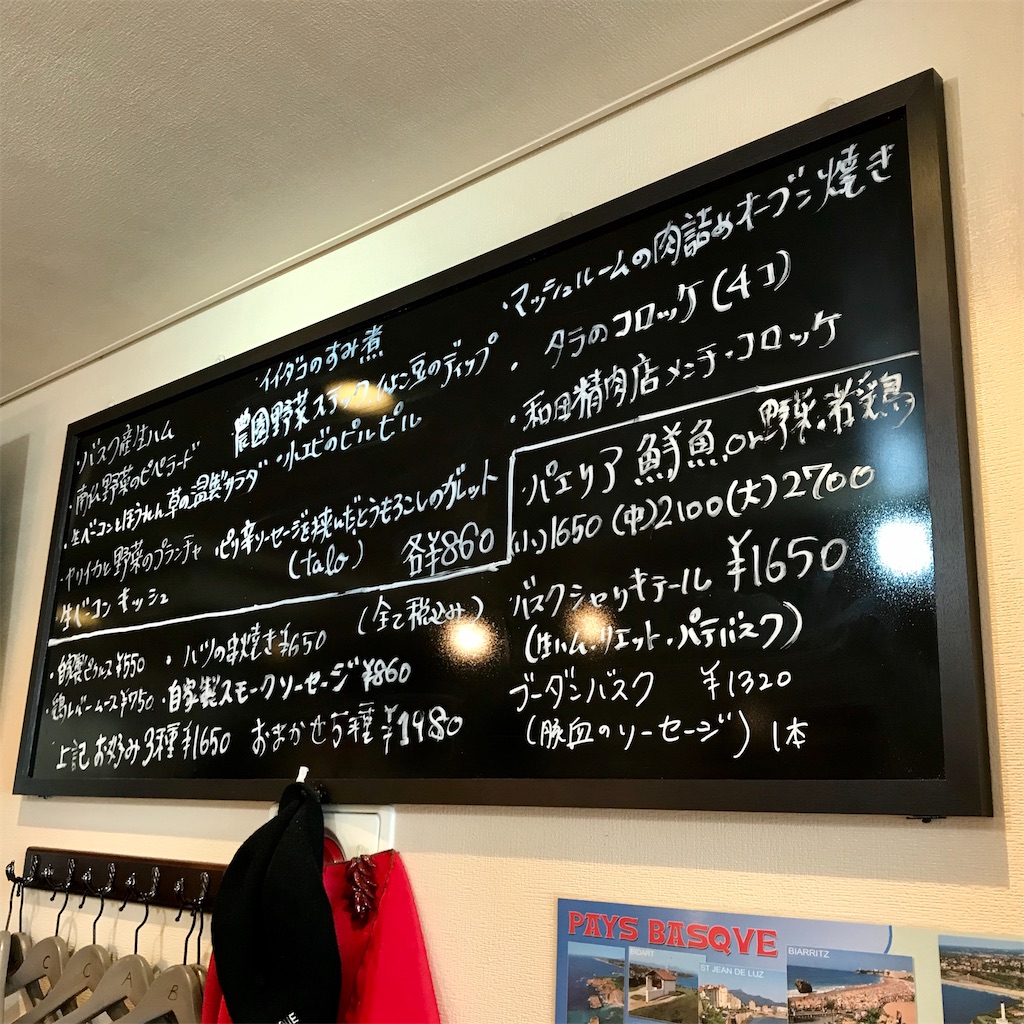 ・バスク産生ハム
・南仏野菜のピペラード
・生ベーコンとほうれん草の温製サラダ
・ヤリイカと野菜のプランチャ
生ベーコン キッシュ
・イイダコのすみ煮
農園野菜スティック ひよこ豆のディップ
・小エビのピルピル
・ピリ辛ソーセージを挟いだとうもろこしのガレット
(talo) 各¥860
・マッシュルームの肉詰めオーブン焼き
・タラのコロッケ(4コ)
・和田精肉店メンチ・コロッケ
・パエリア 鮮魚 or 野菜と若鶏
(小)1650 (中)2100 (大)2700
(全て税込み)
・自家製ピクルス¥550
・ハツの串焼き¥650
・鶏レバームース¥750
・自家製スモークソーセージ ¥860
上記お好み3種¥1650 おまかせ5種¥1980
バスクシャリキテール ¥1650
(生ハム・リエット・パテバスク)
ブーダンバスク ¥1320
(豚血のソーセージ) 1本
C
C
A
B
PAYS BASQVE
ST JEAN DE LUZ
BIARRITZ